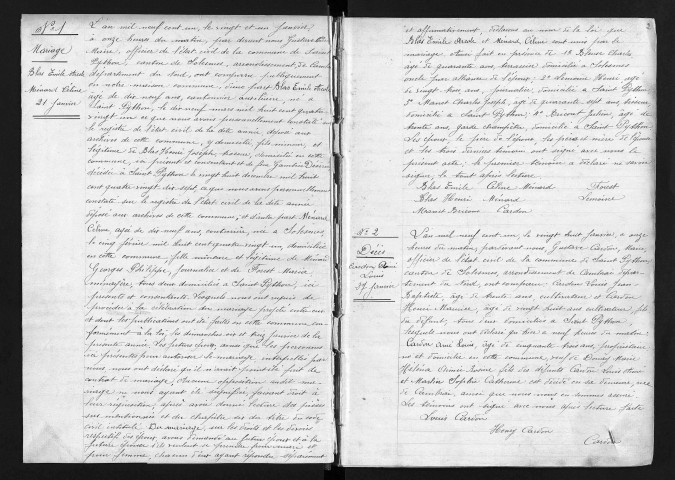 N° 1
Mariage
Blas Emile Arède
Ménard Céline
21 janvier
L'an mil neuf cent un, le vingt et un janvier
à onze heures du matin, par devant nous Gustave
Maire, officier de l'état civil de la commune de Saint
Python, canton de Solesmes, arrondissement de Cambrai
département du Nord, ont comparu publiquement
en notre maison commune, d'une part Blas Emile
âgé de dix neuf ans, cantonnier auxiliaire, né à
Saint Python, le dix neuf mai mil huit cent quatre
vingt un ce que nous avons personnellement constaté sur
le registre de l'état civil de la dite année déposé aux
archives de cette commune, y domicilié, fils mineur et
légitime de Blas Henri Joseph, domicilié en cette
commune, ici présent et consentant et de feue Désirée
décédée à Saint Python le vingt huit décembre mil huit
cent quatre vingt dix sept ce que nous avons personnellement
constaté sur le registre de l'état civil de la dite année
déposé aux archives de cette commune, et d'autre part Ménard
Céline âgée de dix neuf ans, née à Solesmes,
le vingt février mil huit cent quatre vingt un domiciliée
en cette commune, fille mineure et légitime de Ménard
Georges Philippe, journalier et de Forest Maria,
ménagère, tous deux domiciliés à Saint Python, ici
présents et consentants. Lesquels nous ont requis de
procéder à la célébration du mariage projeté entre eux
et dont les publications ont été faites en cette commune
conformément à la loi, les dimanches six et treize janvier de la
présente année. Les futurs époux, ainsi que les personnes
ici présentes pour autoriser le mariage interpellés par
nous nous ont déclaré qu'il n'avait point été fait de
contrat de mariage. Aucune opposition audit
mariage ne nous ayant été signifiée, faisant droit à
leur réquisition, après avoir donné lecture des pièces
sus mentionnées et du chapitre six du titre du code
civil intitulé Du mariage, sur les droits et les devoirs
respectifs des époux avons demandé au futur époux et à la
future épouse s'ils veulent se prendre pour mari et
pour femme, chacun d'eux ayant répondu séparément
2
et affirmativement, déclarons au nom de la loi que
Blas Emile Arède et Ménard Céline sont unis par le
mariage
âgé de quarante ans, domicilié à Solesmes
oncle par alliance de l'époux, 2° Lemoine Henri âgé
de vingt trois ans, journalier, domicilié à Saint Python
3° Joseph, âgé de quarante sept ans
domicilié à Saint Python, 4° Julien, âgé de
trente ans, garde champêtre, domicilié à Saint Python.
Les époux, le père de l'époux, les père et mère de l'épouse
et les trois derniers témoins ont signé avec nous le
présent acte, le premier témoin a déclaré ne savoir
signer, le tout après lecture.
Blas Emile Céline Ménard Forest
Blas Henri Ménard Lemoine
Cardon
N° 2
Décès
Cardon
Louis
27 janvier
L'an mil neuf cent un, le vingt huit janvier, à onze
heures du matin, par devant nous, Gustave Cardon, Maire,
officier de l'état civil de la commune de Saint Python,
canton de Solesmes, arrondissement de Cambrai
département du Nord, ont comparu Cardon Louis Jean
Baptiste, âgé de trente ans, cultivateur et Cardon
Henri Maurice, âgé de vingt huit ans cultivateur, fils
du défunt, tous deux domiciliés à Saint Python
lesquels nous ont déclaré qu'hier à neuf heures du matin
Cardon Louis, âgé de cinquante trois ans, propriétaire
né et domicilié en cette commune, veuf de Marie
fils des défunts Cardon Louis
et Martin Sophie Catherine est décédé en sa demeure, rue
de Cambrai, ainsi que nous nous en sommes assuré.
Les témoins ont signé avec nous après lecture faite
Louis Cardon
Henry Cardon
Cardon